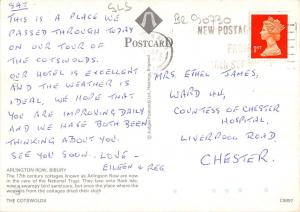 SAT
THIS IS A PLACE WE
PASSED THROUGH TODAY
ON OUR TOUR OF
THE COTSWOLDS.
OUR HOTEL IS EXCELLENT
AND THE WEATHER IS
IDEAL, WE HOPE THAT
YOU ARE IMPROVING DAILY
AND WE HAVE BOTH BEEN
THINKING ABOUT YOU.
SEE YOU SOON. LOVE -
EILEEN & REG
ARLINGTON ROW, BIBURY
The 17th century cottages known as Arlington Row are now
in the care of the National Trust. They face onto Rack Isle,
now a swampy bird sanctuary, but once the place where
the weavers from the cottages dried their cloth
THE COTSWOLDS
POSTCARD
GLS
BR 90730
NEW POSTAG
FROM
1ST
MRS. ETHEL JAMES,
WARD 4H,
COUNTESS OF CHESTER
HOSPITAL,
LIVERPOOL ROAD,
CHESTER.